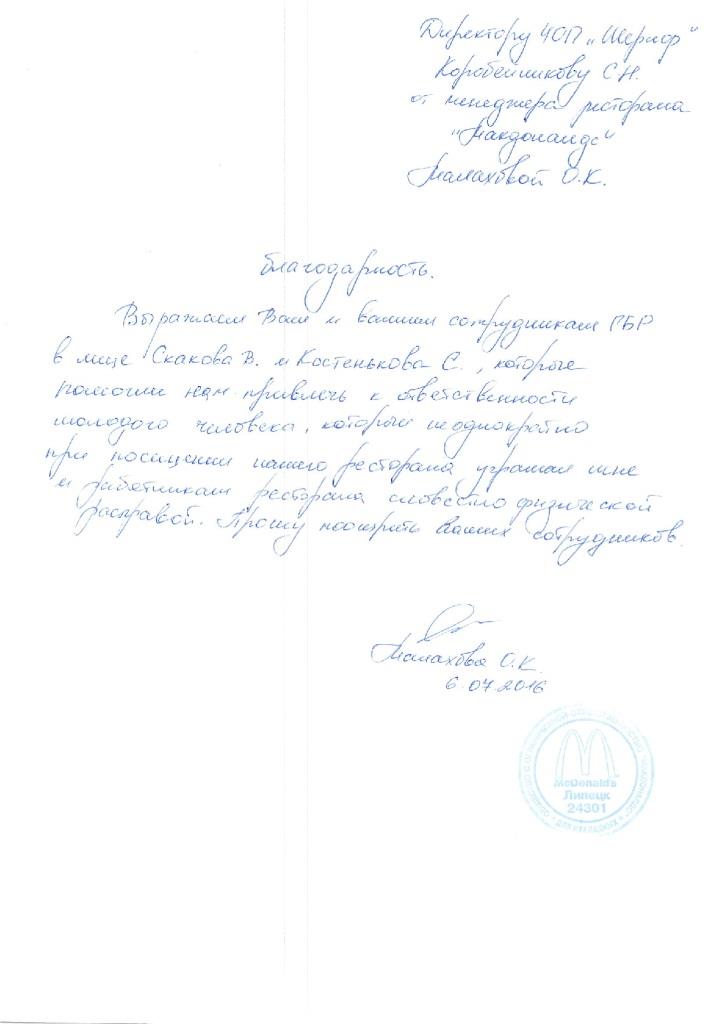 Директору ЧОП „Шериф"
Коробейникову С.Н.
от менеджера ресторана
"Макдональдс"
Малаховой О.К.
Благодарность.
Выражаем Вам и вашим сотрудникам ГБР
в лице Скакова В. и Костенькова С., которые
помогли нам привлечь к ответственности
молодого человека, который неоднократно
при посещении нашего ресторана угрожал мне
и работникам ресторана словестно физической
расправой. Прошу поощрить Ваших сотрудников.
Малахова О.К.
6.07.2016
ОБЩЕСТВО С ОГРАНИЧЕННОЙ ОТВЕТСТВЕННОСТЬЮ "МАКДОНАЛДС"
McDonald's
Липецк
24301
* ДЛЯ НАКЛАДНЫХ *